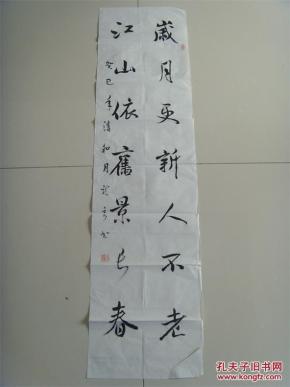 歲月更新人不老
江山依舊景長春
癸巳年清和月
孔夫子旧书网